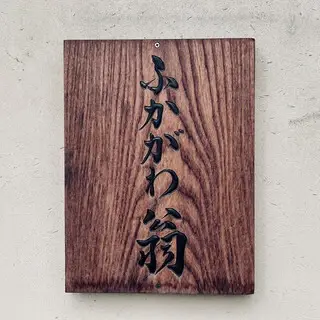 ふかがわ翁